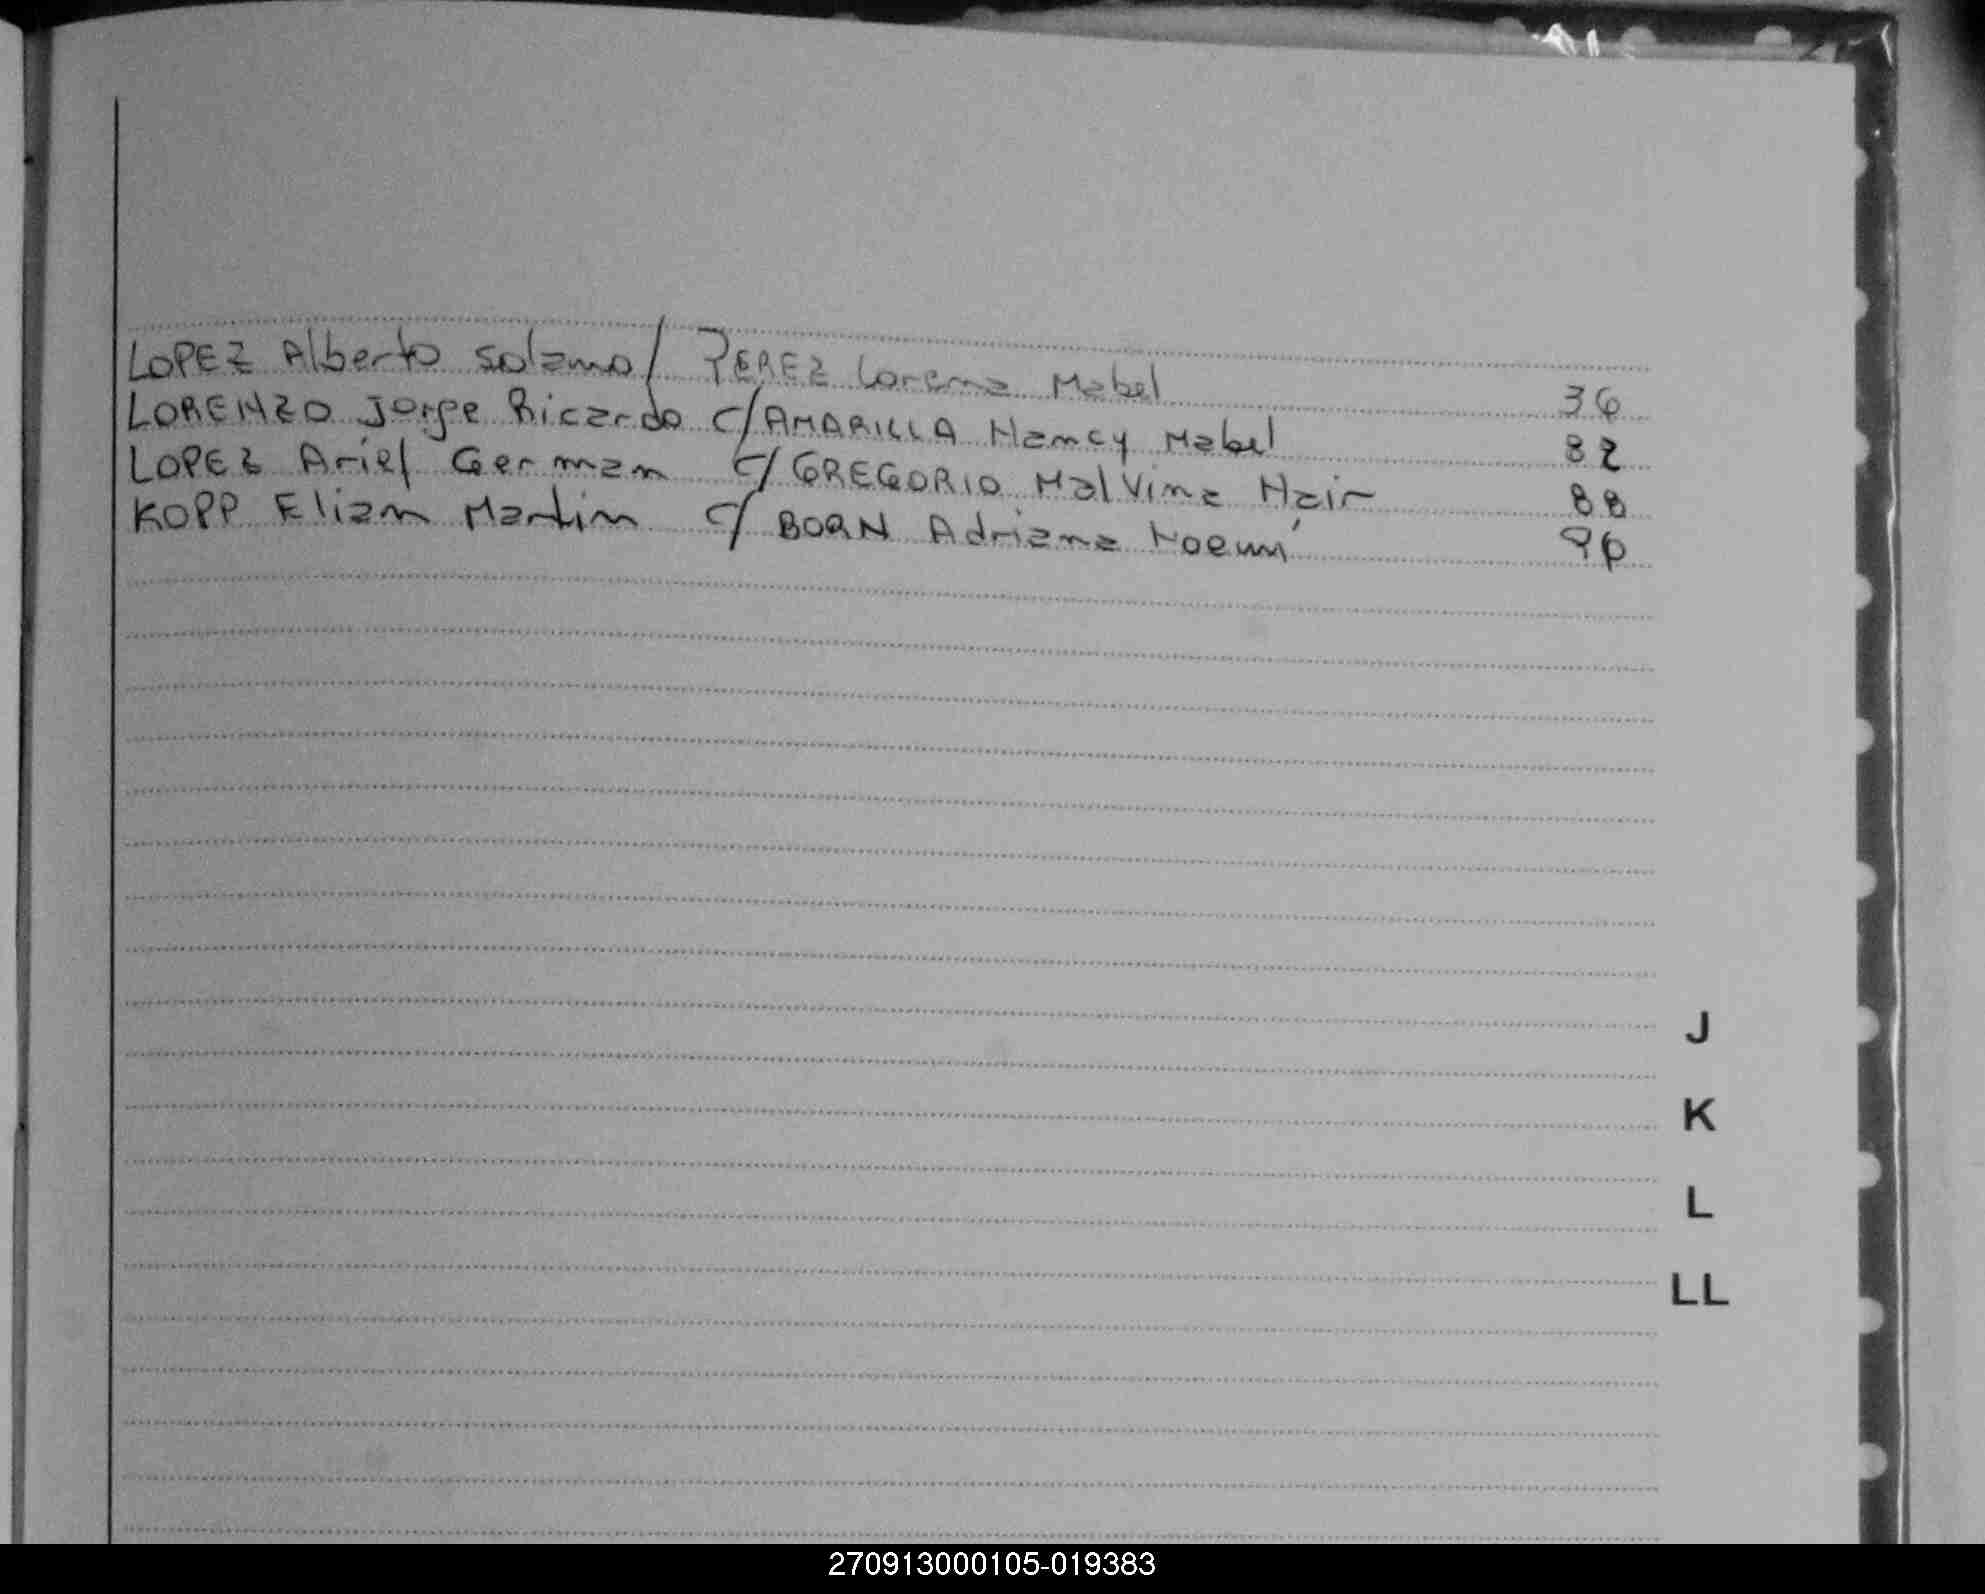 LOPEZ Alberto Solano / PEREZ Lorena Mabel 36
LORENZO Jorge Ricardo c/ AMARILLA Nancy Mabel 82
LOPEZ Ariel German c/ GREGORIO Malvina Nair 88
KOPP Elian Martin c/ BORN Adriana Noemí 96
J
K
L
LL
270913000105-019383